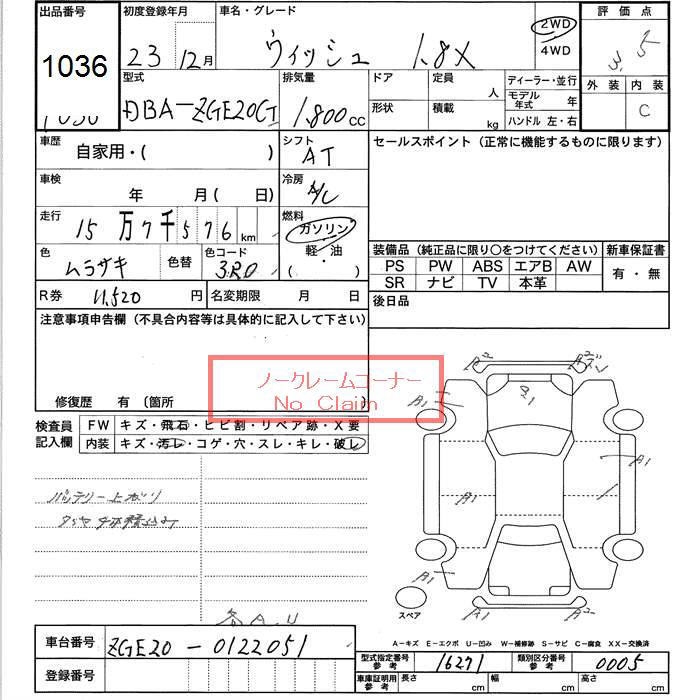 出品番号 初度登録年月 車名・グレード 評価点
1036 23年 12月 ウィッシュ 1.8X 2WD 4WD 3.5
型式 排気量 ドア 定員 人 ディーラー・並行 外装 内装
DBA-ZGE20G 1,800cc 形状 積載 kg モデル年式 年 C
ハンドル 左・右
車歴 自家用・( ) シフト AT セールスポイント(正常に機能するものに限ります)
車検 年 月( 日) 冷房 A/C
走行 15万7千576km 燃料 ガソリン・軽・油 ( )
色 ムラサキ 色替 色コード 3R0
装備品(純正品に限り○をつけてください) 新車保証書
PS PW ABS エアB AW 有・無
SR ナビ TV 本革
R券 11,520円 名変期限 月 日 後日品
注意事項申告欄(不具合内容等は具体的に記入して下さい)
ノークレームコーナー
No Claim
修復歴 有(箇所 )
検査員記入欄 FW キズ・飛石・ヒビ割・リペア跡・X要
内装 キズ・汚レ・コゲ・穴・スレ・キレ・破レ
バッテリー上がり
A2 A1 A1 A1 A1 A1 A2
スペア
各A.U
A-キズ E-エクボ U-凹み W-補修跡 S-サビ C-腐食 XX-交換済
車台番号 ZGE20-0122051
型式指定番号 参考 16271 類別区分番号 参考 0005
登録番号
車庫証明用 参考 長さ cm 幅 cm 高さ cm